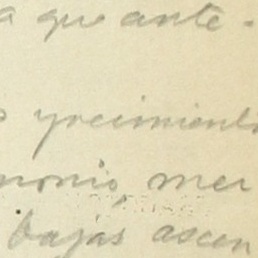 a que ante-
yacimiento
monio, mer
bajas ascen